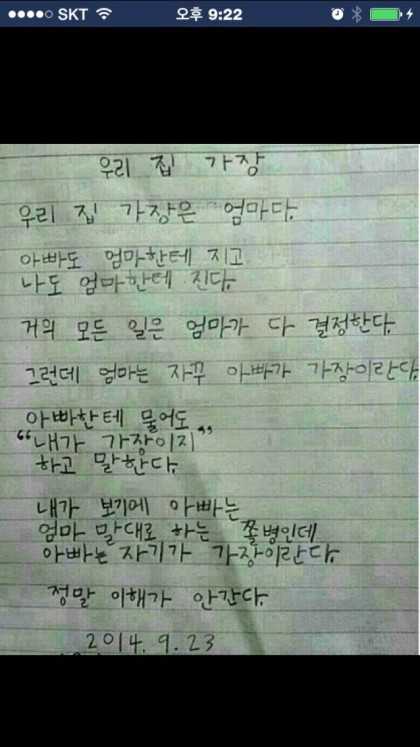 SKT 오후 9:22
우리 집 가장
우리 집 가장은 엄마다.
아빠도 엄마한테 지고
나도 엄마한테 진다.
거의 모든 일은 엄마가 다 결정한다.
그런데 엄마는 자꾸 아빠가 가장이란다
아빠한테 물어도
“내가 가장이지”
하고 말한다.
내가 보기에 아빠는
엄마 말대로 하는 쫄병인데
아빠는 자기가 가장이란다.
정말 이해가 안간다.
2014. 9. 23